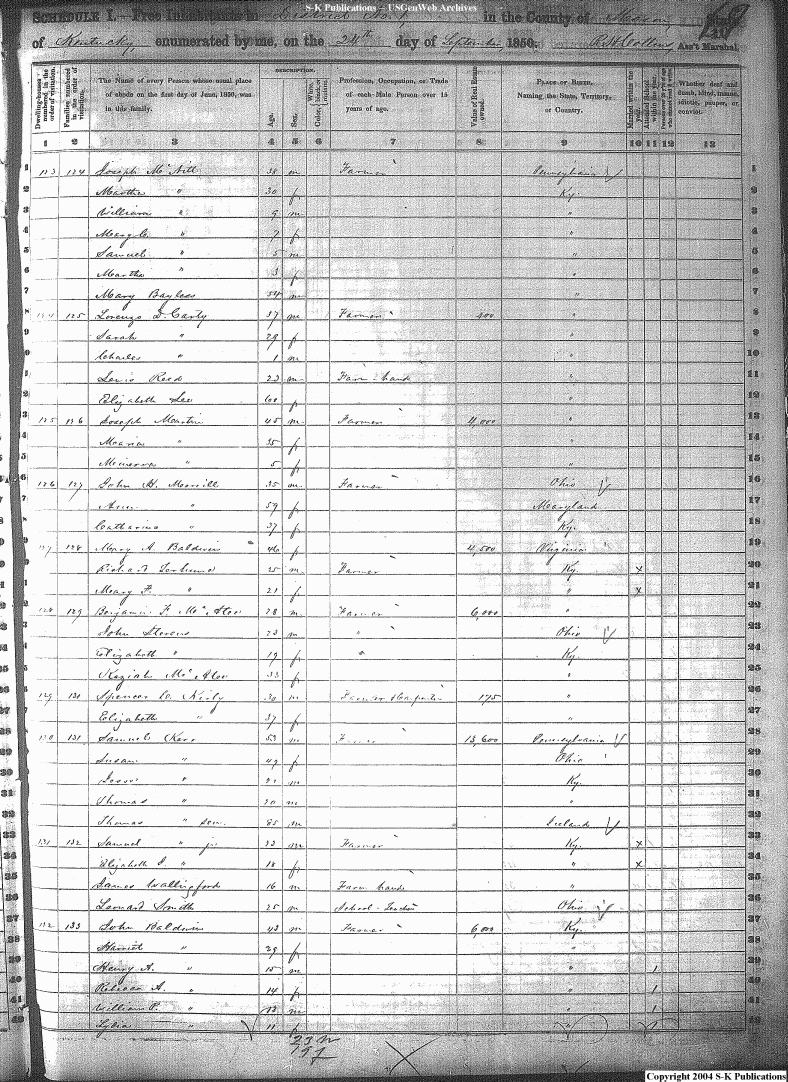 S-K Publications – USGenWeb Archives
SCHEDULE I.—Free Inhabitants in District No. 1 in the County of Mason State
of Kentucky enumerated by me, on the 24th day of September 1850. R H Collins Ass't Marshal.
DESCRIPTION.
Dwelling-houses numbered in the order of visitation. Families numbered in the order of visitation. The Name of every Person whose usual place of abode on the first day of June, 1850, was in this family. Age. Sex. Color, White, black, or mulatto. Profession, Occupation, or Trade of each Male Person over 15 years of age. Value of Real Estate owned. PLACE OF BIRTH. Naming the State, Territory, or Country. Married within the year. Attended School within the year. Whether deaf and dumb, blind, insane, idiotic, pauper, or convict.
1 2 3 4 5 6 7 8 9 10 11 12 13
1 123 124 Joseph 38 m Farmer Pennsylvania 1
2 Martha " 30 f Ky. 2
3 William " 9 m " 3
4 Mary C. " 7 f " 4
5 Samuel " 5 m " 5
6 Martha " 3 f " 6
7 Mary Bayless 54 m " 7
8 124 125 Lorenzo D. Carty 37 m Farmer 400 " 8
9 Sarah " 29 f " 9
10 Charles " 1 m " 10
11 Lewis Reed 23 m Farm hand " 11
12 Elizabeth Lee 60 f " 12
13 125 126 Joseph Martin 45 m Farmer 4,000 " 13
14 Maria " 35 f " 14
15 Minerva " 5 f " 15
16 126 127 John H. Merrill 35 m Farmer Ohio 16
17 Ann " 59 f Maryland 17
18 Catharine " 37 f Ky. 18
19 127 128 Mary A. Baldwin 46 f 4,500 Virginia 19
20 Richard 25 m Farmer Ky. x 20
21 Mary F. " 21 f " x 21
22 128 129 Benjamin F. 28 m Farmer 6,000 " 22
23 John Stevens 23 m " Ohio 23
24 Elizabeth " 19 f " Ky. 24
25 Keziah 33 f " 25
26 129 130 Spencer D. Kirly 30 m Farmer & Carpenter 175 " 26
27 Elizabeth " 37 f " 27
28 130 131 Samuel Kerr 53 m Farmer 13,600 Pennsylvania 28
29 Susan " 49 f Ohio 29
30 Jesse " 21 m Ky. 30
31 Thomas " 20 m " 31
32 Thomas " sen. 85 m Ireland 32
33 131 132 Samuel " jr 23 m Farmer Ky. x 33
34 Elizabeth J. " 18 f " x 34
35 James Wallingford 16 m Farm hand " 35
36 Leonard Smith 25 m School Teacher Ohio 36
37 132 133 John Baldwin 43 m Farmer 6,000 Ky. 37
38 Harriet " 29 f " 38
39 Henry A. " 15 m " 1 39
40 Rebecca A. " 14 f " 1 40
41 William P. " 12 m " 1 41
42 Lydia " 11 f " 1 42
23 m
19 f
Copyright 2004 S-K Publications